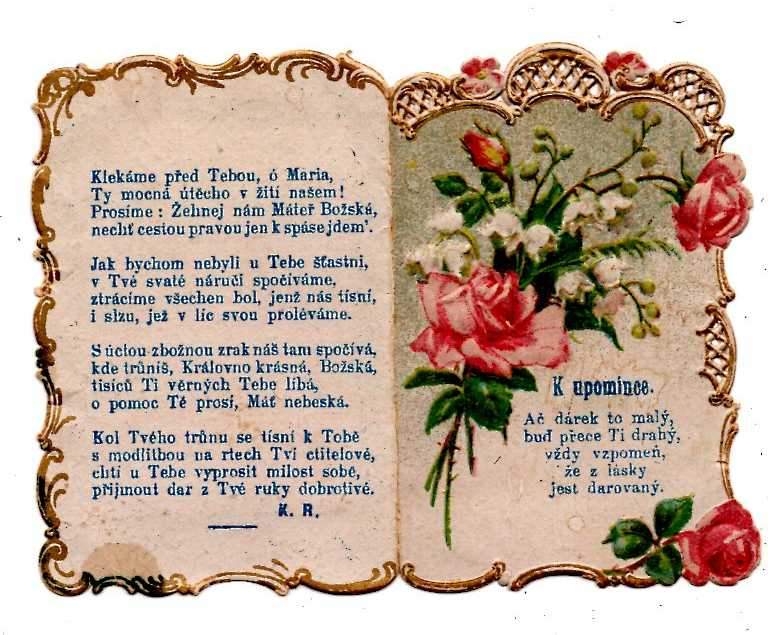 Klekáme před Tebou, ó Maria,
Ty mocná útěcho v žití našem!
Prosíme: Žehnej nám Máteř Božská,
nechť cestou pravou jen k spáse jdem'.
Jak bychom nebyli u Tebe šťastni,
v Tvé svaté náručí spočíváme,
ztrácíme všechen bol, jenž nás tísní,
i slzu, jež v líc svou proléváme.
S úctou zbožnou zrak náš tam spočívá,
kde trůníš, Královno krásná, Božská,
tisíců Ti věrných Tebe líbá,
o pomoc Tě prosí, Máť nebeská.
Kol Tvého trůnu se tísní k Tobě
s modlitbou na rtech Tví ctitelové,
chtí u Tebe vyprosit milost sobě,
přijmout dar z Tvé ruky dobrotivé.
K. R.
K upomínce.
Ač dárek to malý,
buď přece Ti drahý,
vždy vzpomeň,
že z lásky
jest darovaný.